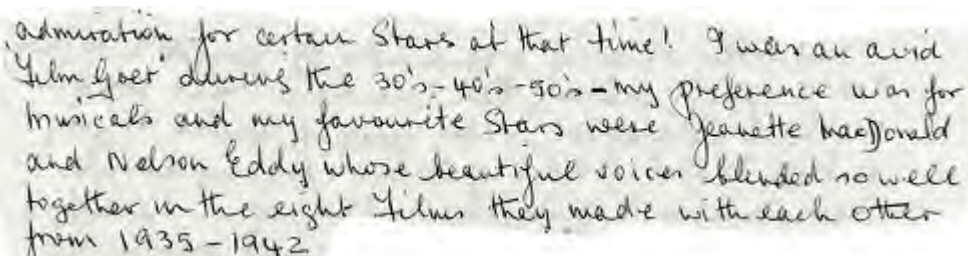 admiration for certain Stars at that time! I was an avid
'Film Goer' during the 30's-40's-50's - my preference was for
musicals and my favourite Stars were Jeanette MacDonald
and Nelson Eddy whose beautiful voices blended so well
together in the eight Films they made with each other
from 1935-1942